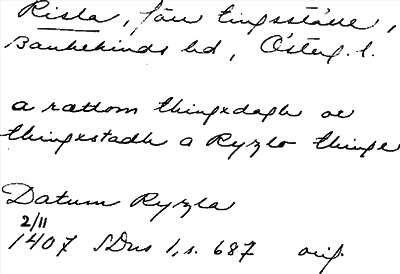 Risla, förr tingsställe,
Bankekinds hd, Österg. l.
a rættom thingxdagh oc
thingxstadh a Ryzlo thinge
Datum Ryzla
2/11
1407 SDns 1, s. 687 orig.